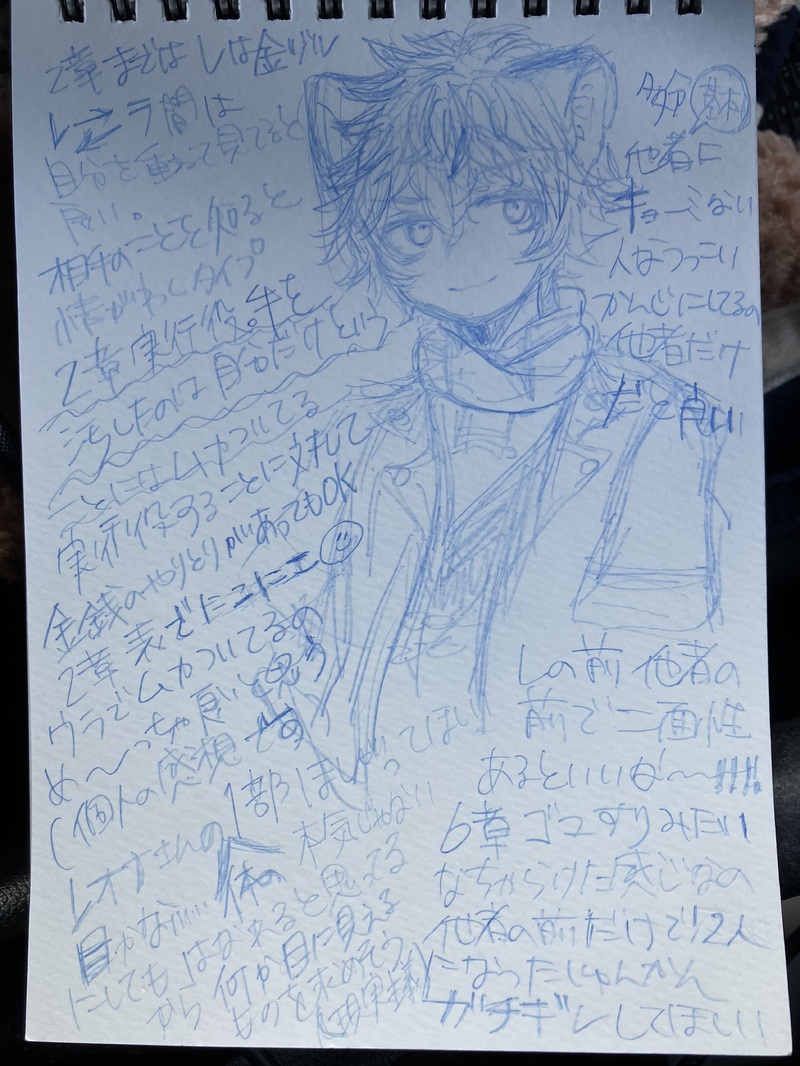 2章までは レは金ヅル
レ⇄ラ間は
自分を重ねて見てると
良い。
相手のことを知ると
情がわくタイプ
2章実行役。手を
汚したのは自分だけという
ことにはムカついてる
実行役することに対して
金銭のやりとりがあってもOK
2章 表でにこにこ
ウラでムカついてるの
め〜っちゃ良いと思う
(個人の感想です)
レオナさんの1部ほしがってほしい
目かな…… 体の 本気じゃない
にしても はなれると思ってる
から 何か目に見える
ものを求めてそう
基本
他者に
キョーミない
人なつっこい
かんじにしてるの
他者だけ
だと良い
レの前 他者の
前で二面性
あるといいな〜!!!!
6章 ゴマすりみたい
なちゃらけた感じなの
他者の前だけで2人
になったしゅんかん
ガチギレしてほしい